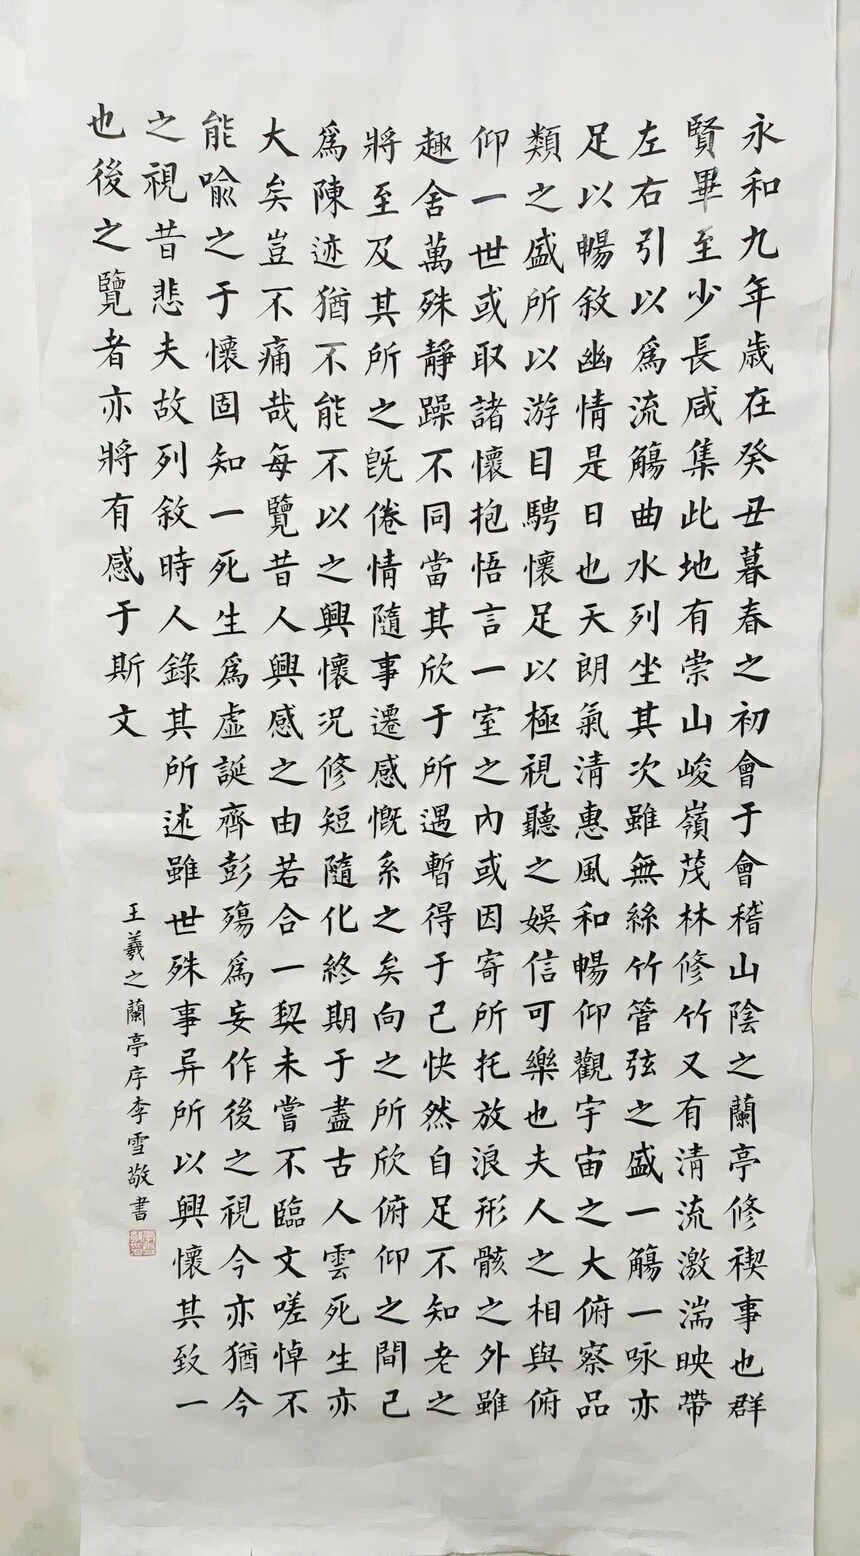 永和九年歲在癸丑暮春之初會于會稽山陰之蘭亭修禊事也群
賢畢至少長咸集此地有崇山峻嶺茂林修竹又有清流激湍映帶
左右引以爲流觴曲水列坐其次雖無絲竹管弦之盛一觴一咏亦
足以暢敘幽情是日也天朗氣清惠風和暢仰觀宇宙之大俯察品
類之盛所以游目騁懷足以極視聽之娛信可樂也夫人之相與俯
仰一世或取諸懷抱悟言一室之內或因寄所托放浪形骸之外雖
趣舍萬殊靜躁不同當其欣于所遇暫得于己快然自足不知老之
將至及其所之既倦情隨事遷感慨系之矣向之所欣俯仰之間已
爲陳迹猶不能不以之興懷況修短隨化終期于盡古人雲死生亦
大矣豈不痛哉每覽昔人興感之由若合一契未嘗不臨文嗟悼不
能喻之于懷固知一死生爲虛誕齊彭殤爲妄作後之視今亦猶今
之視昔悲夫故列敘時人錄其所述雖世殊事异所以興懷其致一
也後之覽者亦將有感于斯文
王羲之蘭亭序李雪敬書